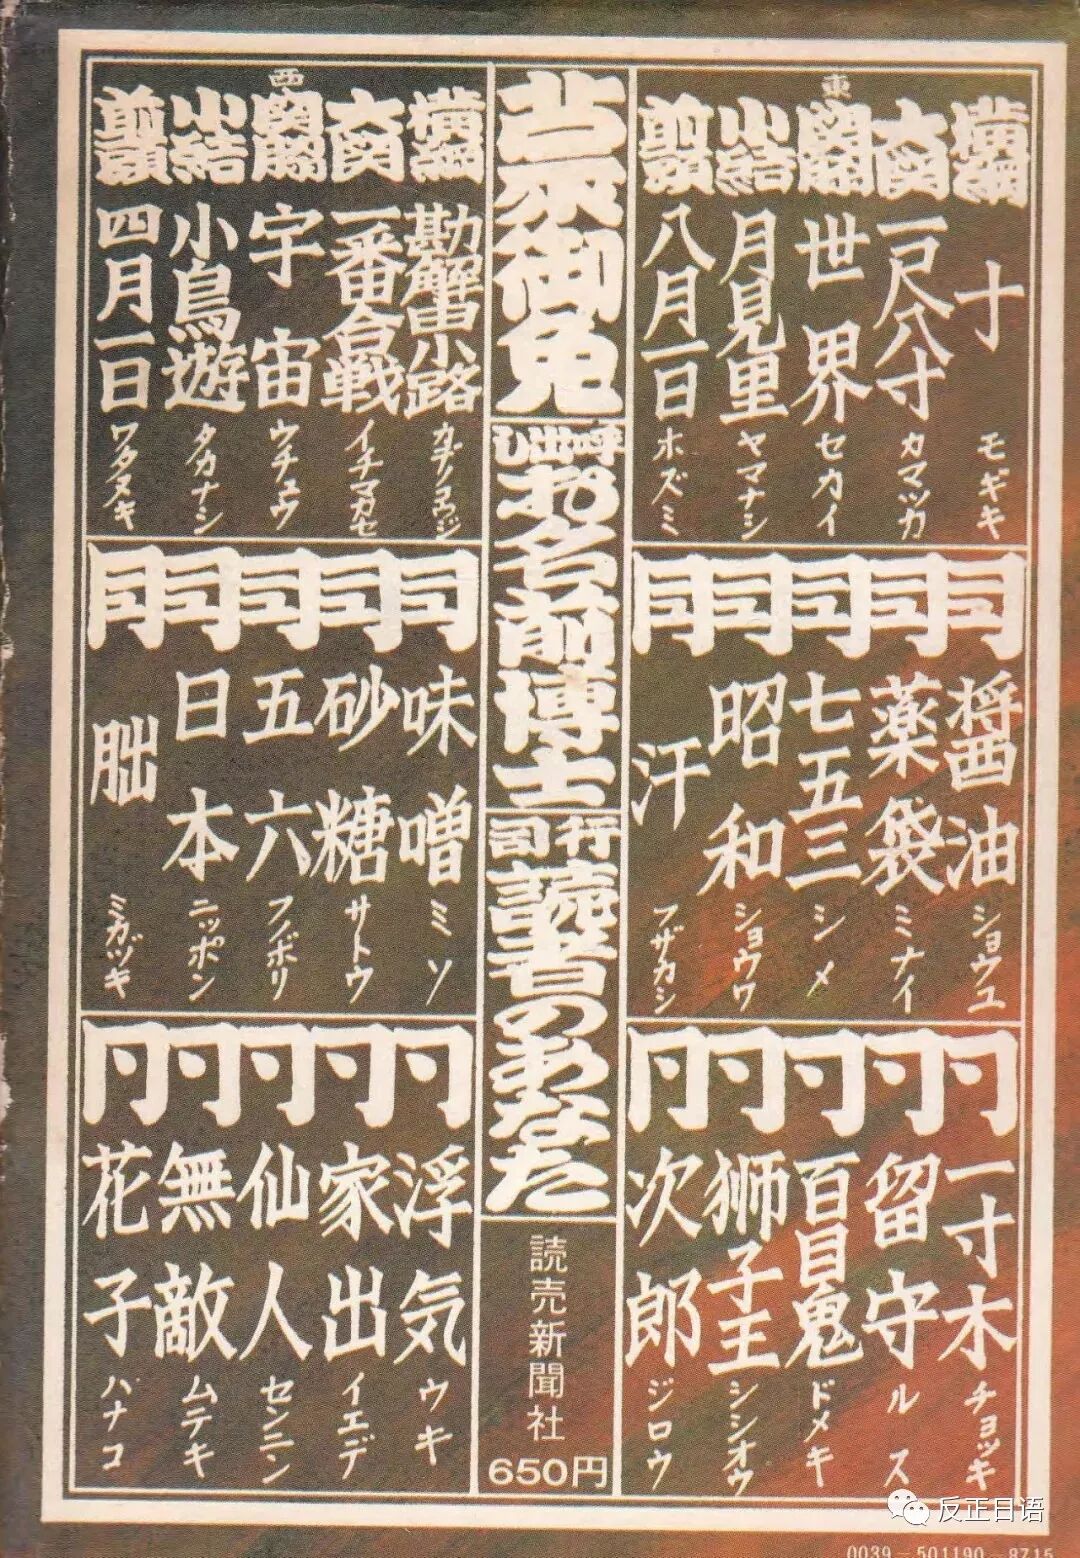 東
横綱 十 モギキ
大関 一尺八寸 カマツカ
関脇 世界 セカイ
小結 月見里 ヤマナシ
前頭 八月一日 ホズミ
同 醤油 ショウユ
同 薬袋 ミナイ
同 七五三 シメ
同 昭和 ショウワ
同 汗 フザカシ
同 一寸木 チョッキ
同 留守 ルス
同 百目鬼 ドメキ
同 獅子王 シシオウ
同 次郎 ジロウ
蒙御免
呼出し
お名前博士
行司
読者のあなた
読売新聞社
650円
西
横綱 勘解由小路 カデノコウジ
大関 一番合戦 イチマカセ
関脇 宇宙 ウチュウ
小結 小鳥遊 タカナシ
前頭 四月一日 ワタヌキ
同 味噌 ミソ
同 砂糖 サトウ
同 五六 フノボリ
同 日本 ニッポン
同 朏 ミカヅキ
同 浮気 ウキ
同 家出 イエデ
同 仙人 センニン
同 無敵 ムテキ
同 花子 ハナコ
反正日语
0039-501190-8715